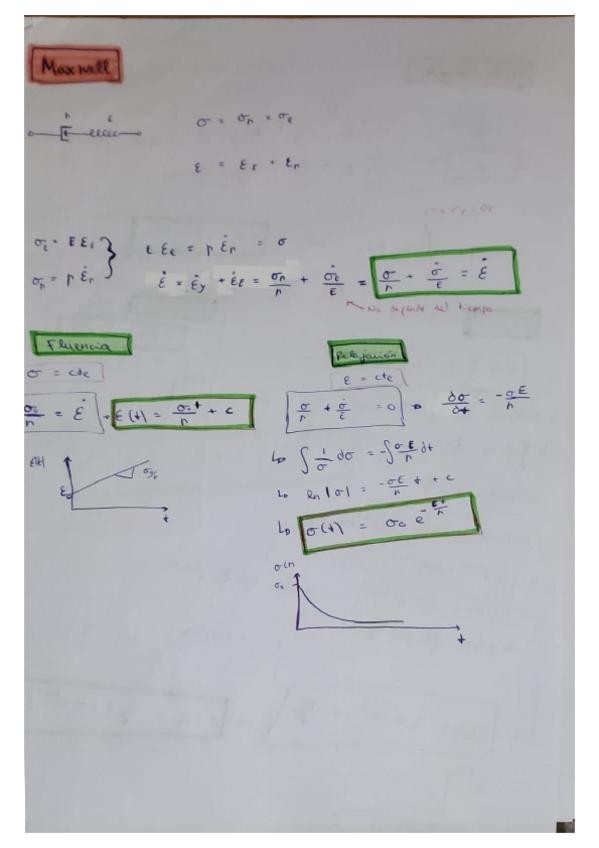 Maxwell
η E
σ = ση = σε
ε = εε + εη
σε = E εε
ση = η ε̇η
E εε = η ε̇η = σ
ε̇ = ε̇η + ε̇ε = ση/η + σ̇ε/E = σ/η + σ̇/E = ε̇
No depende del tiempo
Fluencia
σ = cte
σ₀/η = ε̇ → ε(t) = σ₀t/η + c
ε(t)
σ₀/η
ε₀
t
Relajación
ε = cte
σ/η + σ̇/E = 0 → dσ/dt = -σE/η
↳ ∫ 1/σ dσ = -∫ σE/η dt
↳ ln |σ| = -σE/η t + c
↳ σ(t) = σ₀ e^(-Et/η)
σ(t)
σ₀
t